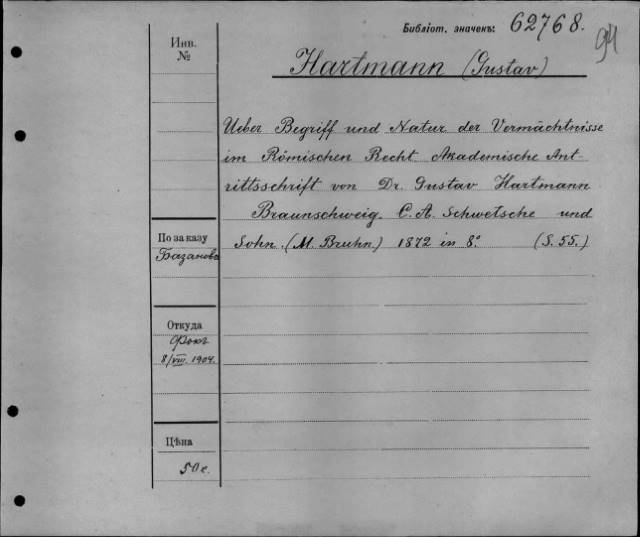 Библіот. значенъ: 62768.
94
Инв.
№
Hartmann (Gustav)
Ueber Begriff und Natur der Vermächtnisse
im Römischen Recht Akademische Ant-
rittsschrift von Dr. Gustav Hartmann
Braunschweig. C. A. Schwetsche und
Sohn. (M. Bruhn.) 1872 in 8.° (S. 55.)
По заказу
Базанова
Откуда
Фокъ
8/VIII. 1904.
Цѣна
50 c.